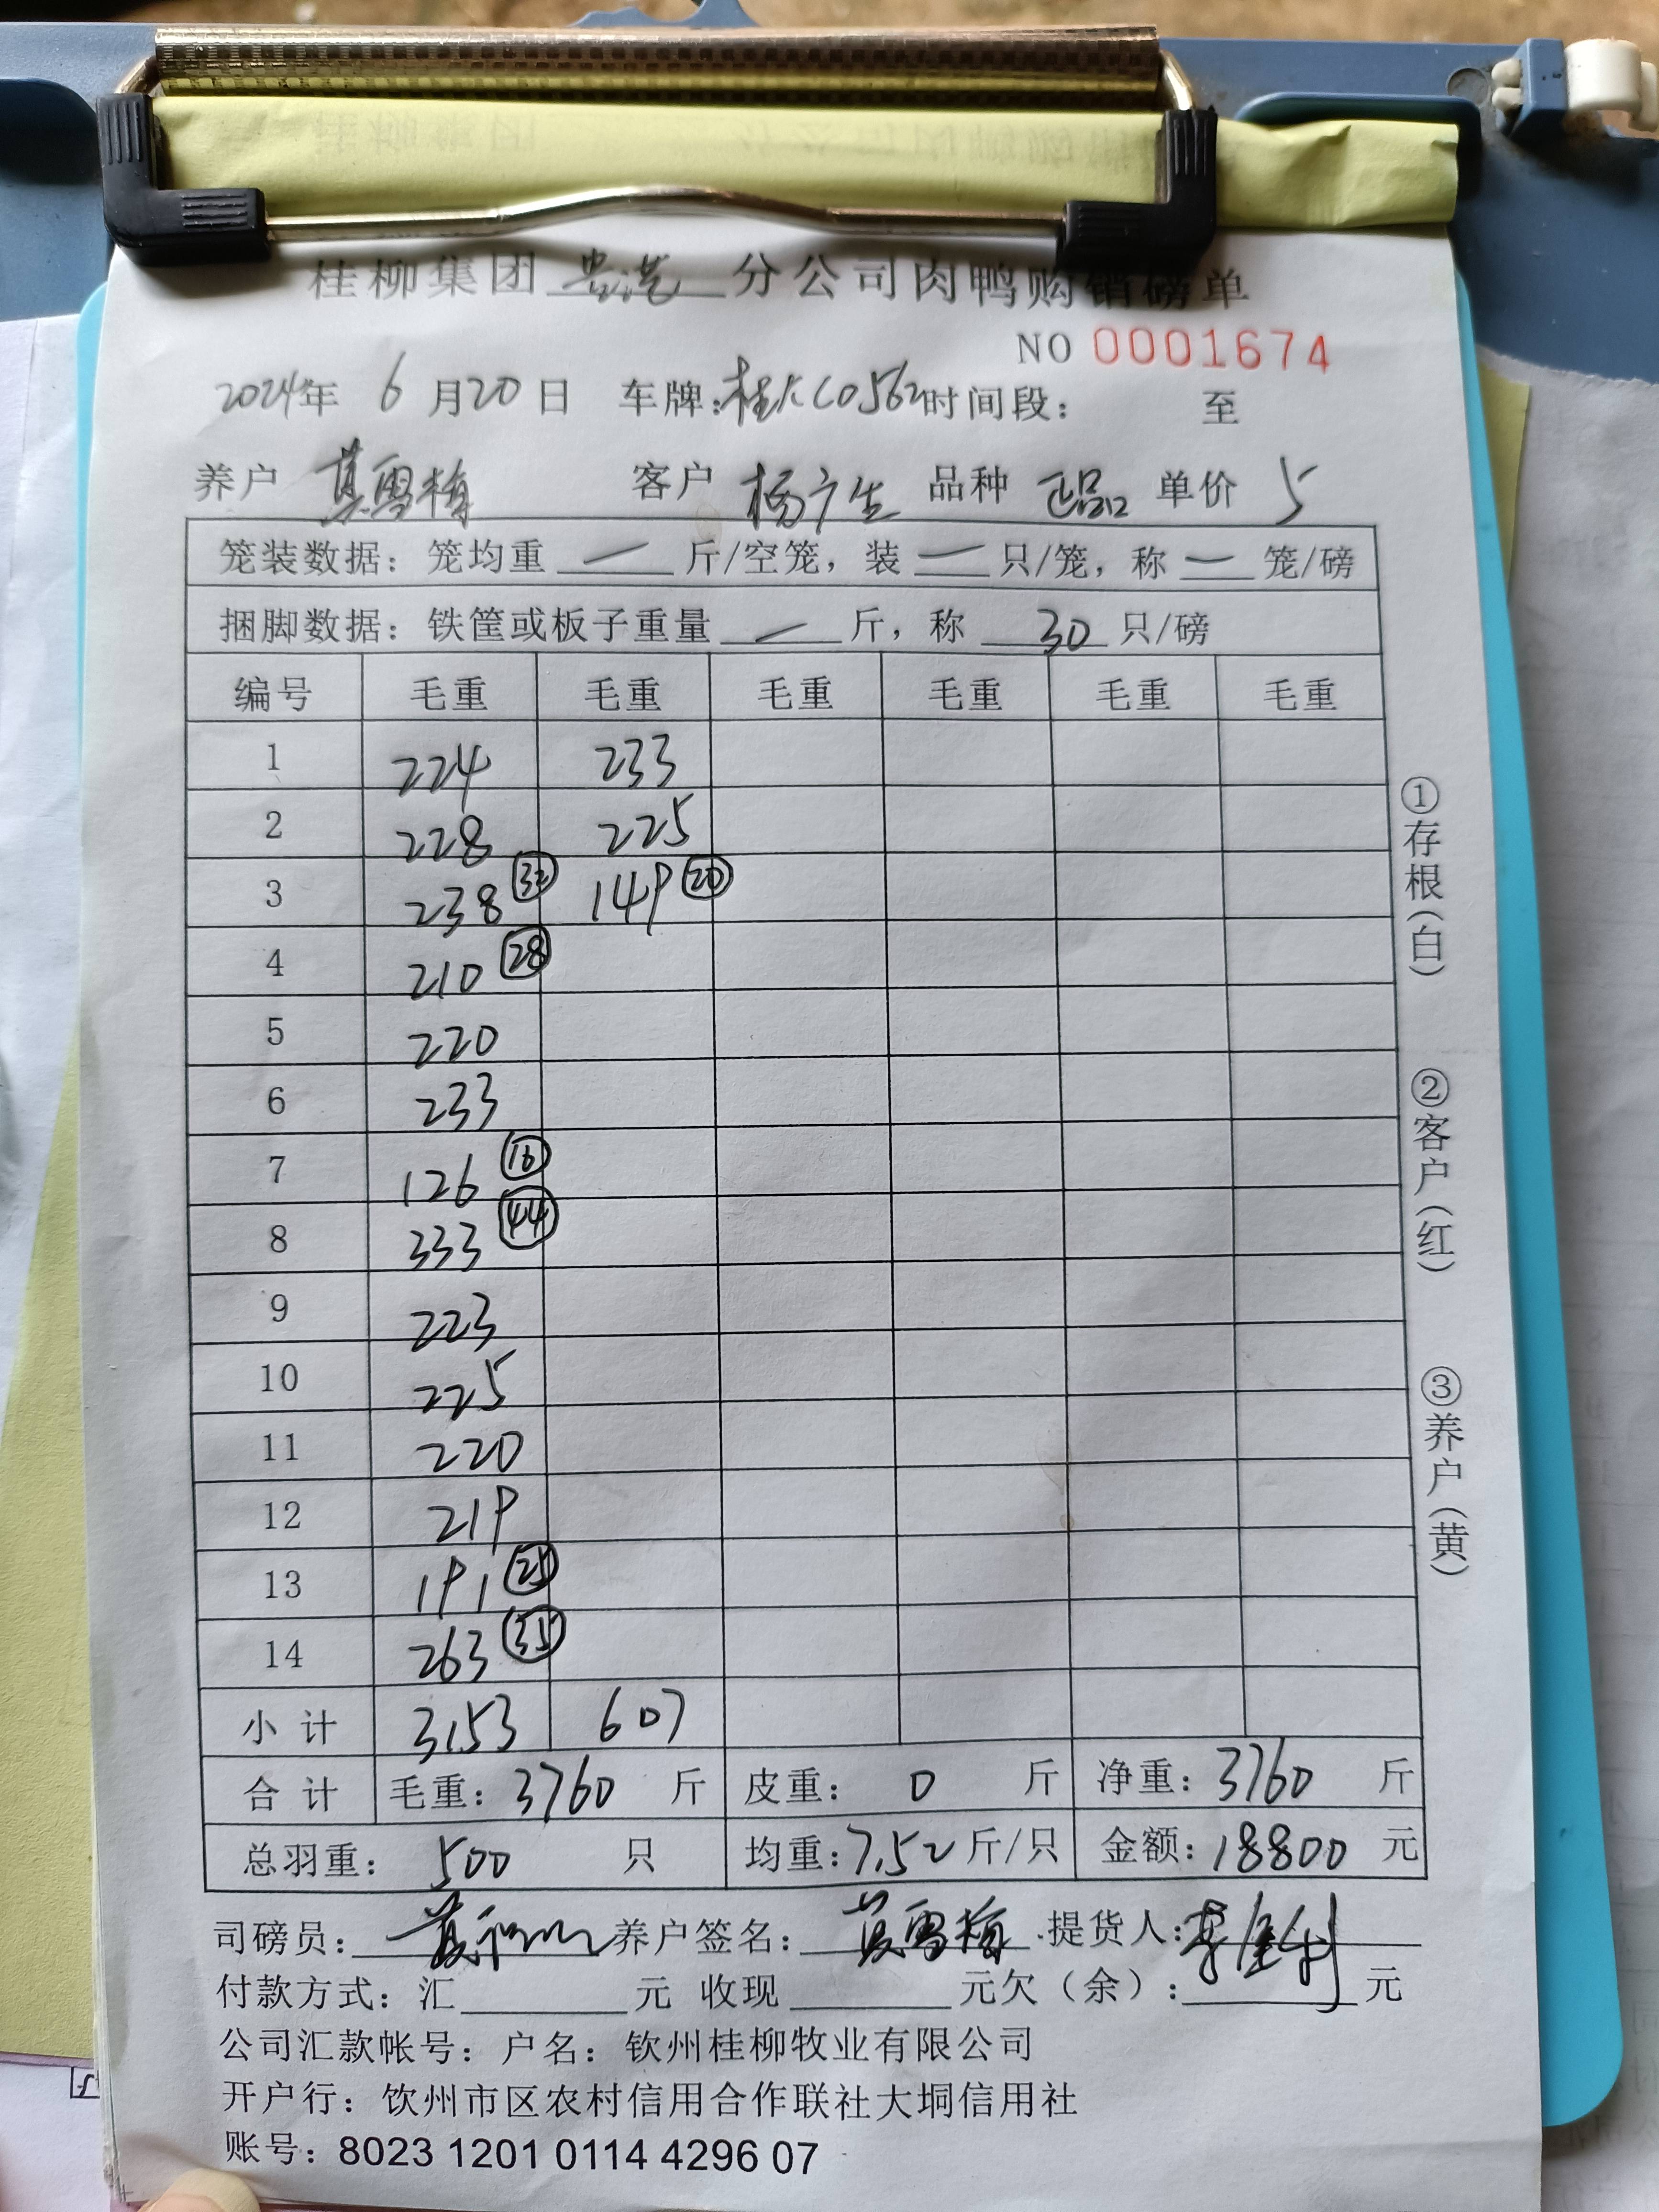 桂柳集团 贵港 分公司肉鸭购销磅单
NO 0001674
2024年 6 月20日 车牌:桂KC0562时间段: 至
养户 莫雪梅 客户 杨广生 品种 正品 单价 5
笼装数据: 笼均重 — 斤/空笼, 装 — 只/笼, 称 — 笼/磅
捆脚数据: 铁筐或板子重量 — 斤, 称 30 只/磅
编号 毛重 毛重 毛重 毛重 毛重 毛重
1 224 233
2 228 225
3 238 32 149 20
4 210 28
5 220
6 233
7 126 16
8 333 44
9 223
10 225
11 220
12 219
13 191 25
14 263 35
小计 3153 607
合计 毛重: 3760 斤 皮重: 0 斤 净重: 3760 斤
总羽重: 500 只 均重: 7.52 斤/只 金额: 18800 元
司磅员: 养户签名: 莫雪梅 提货人:
付款方式: 汇 元 收现 元欠(余): 元
公司汇款帐号: 户名: 钦州桂柳牧业有限公司
开户行: 钦州市区农村信用合作联社大垌信用社
账号: 8023 1201 0114 4296 07
①存根(白)
②客户(红)
③养户(黄)